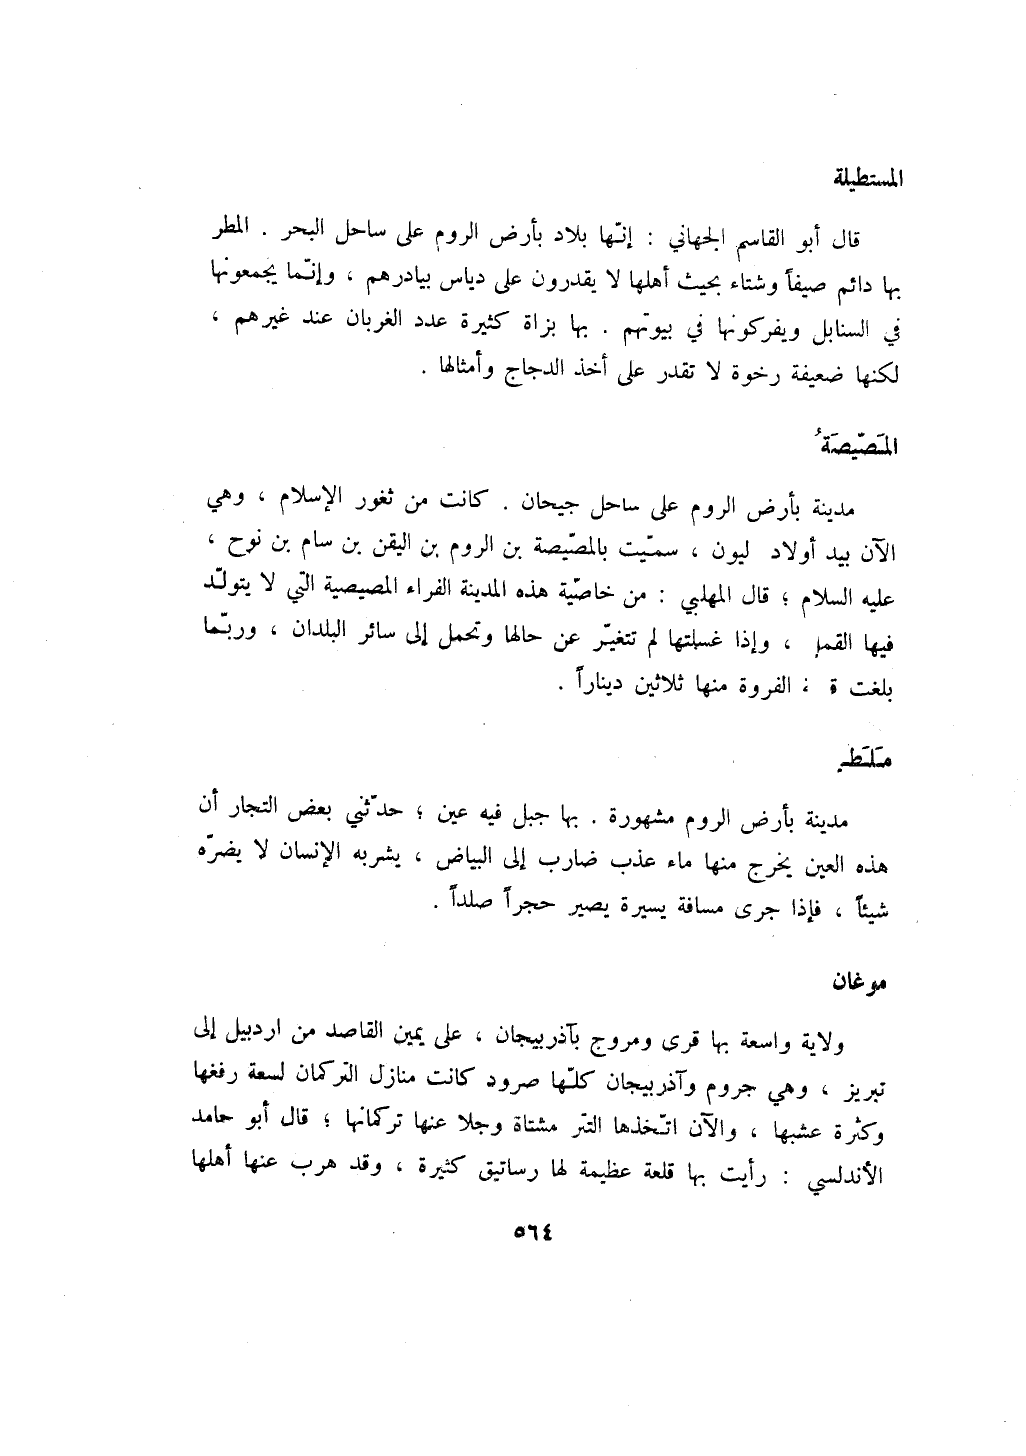 المستطيلة
قال أبو القاسم الجهاني : إنّها بلاد بأرض الروم على ساحل البحر . المطر
بها دائم صيفاً وشتاء بحيث أهلها لا يقدرون على دياس بيادرهم ، وإنّما يجمعونها
في السنابل ويفركونها في بيوتهم . بها بزاة كثيرة عدد الغربان عند غيرهم ،
لكنها ضعيفة رخوة لا تقدر على أخذ الدجاج وأمثالها .
المَصّيصَةُ
مدينة بأرض الروم على ساحل جيحان . كانت من ثغور الإسلام ، وهي
الآن بيد أولاد ليون ، سمّيت بالمصّيصة بن الروم بن اليقن بن سام بن نوح ،
عليه السلام ؛ قال المهلبي : من خاصّية هذه المدينة الفراء المصيصية التي لا يتولّد
فيها القمل ، وإذا غسلتها لم تتغيّر عن حالها وتحمل إلى سائر البلدان ، وربّما
بلغت الفروة منها ثلاثين ديناراً .
مدينة بأرض الروم مشهورة . بها جبل فيه عين ؛ حدّثني بعض التجار أن
هذه العين يخرج منها ماء عذب ضارب إلى البياض ، يشربه الإنسان لا يضرّه
شيئاً ، فإذا جرى مسافة يسيرة يصير حجراً صلداً .
موغان
ولاية واسعة بها قرى ومروج بآذربيجان ، على يمين القاصد من اردبيل إلى
تبريز ، وهي جروم وآذربيجان كلّها صرود كانت منازل التركمان لسعة رفغها
وكثرة عشبها ، والآن اتّخذها التتر مشتاة وجلا عنها تركمانها ؛ قال أبو حامد
الأندلسي : رأيت بها قلعة عظيمة لها رساتيق كثيرة ، وقد هرب عنها أهلها
٥٦٤